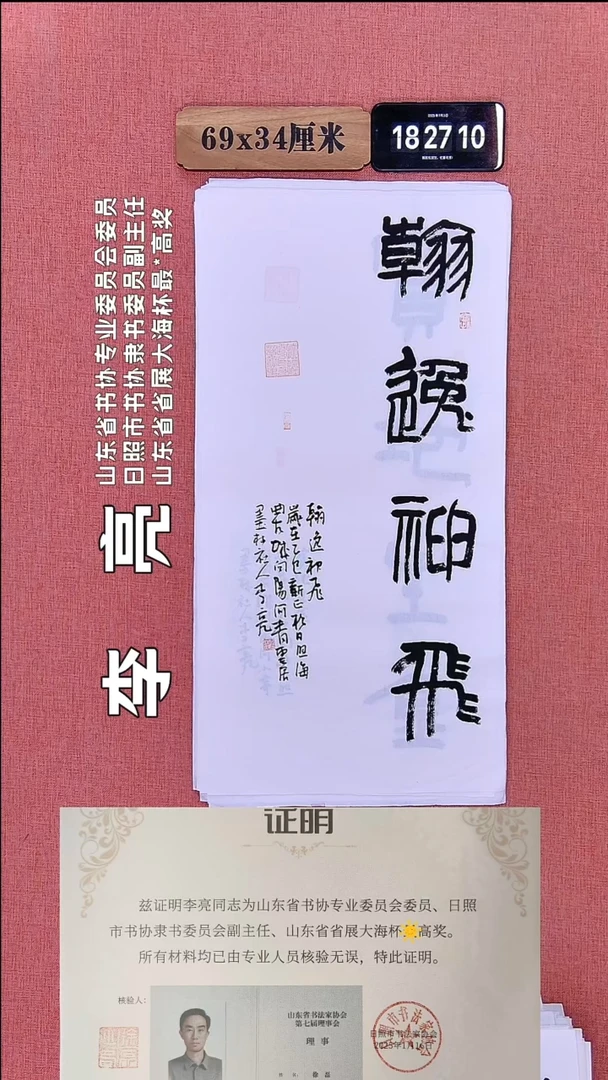 69x34厘米
2025年1月2日
18 27 10
山东省书协专业委员会委员
日照市书协隶书委员副主任
山东省省展大海杯最*高奖
李亮
翰逸神飞
翰逸神飞
岁在乙巳新正于日照海
墨村社人李亮
证明
兹证明李亮同志为山东省书协专业委员会委员、日照
市书协隶书委员会副主任、山东省省展大海杯高奖。
所有材料均已由专业人员核验无误，特此证明。
核验人：
山东省书法家协会
第七届理事会
理事
日照市书法家协会
2025年1月16日